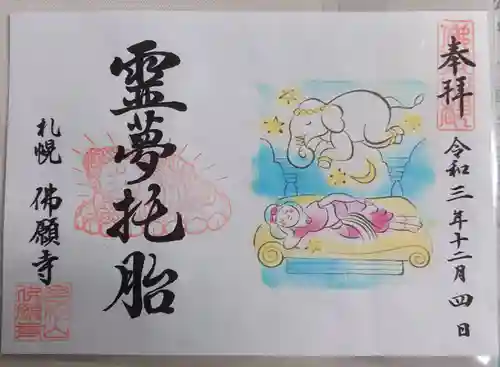 奉拝
令和三年十二月四日
靈夢托胎
札幌 佛願寺